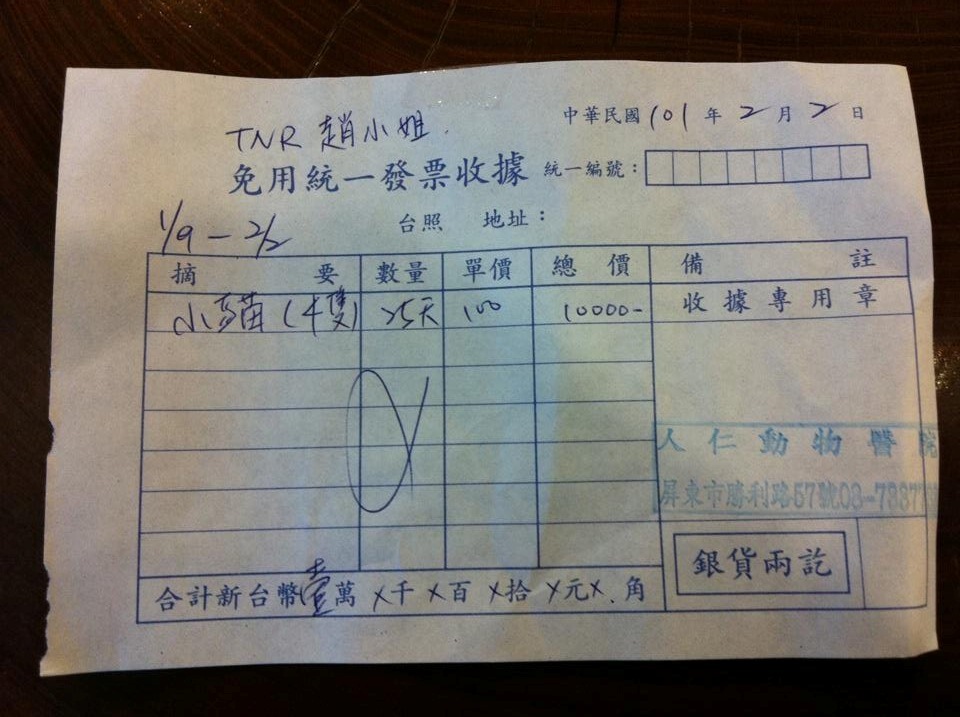 中華民國101年2月2日
TNR 趙小姐
免用統一發票收據 統一編號：
1/9 - 2/2
台照 地址：
摘要 數量 單價 總價 備註
小貓（4隻） 25天 100 10000- 收據專用章
人仁動物醫院
屏東市勝利路57號08-7337
銀貨兩訖
合計新台幣壹萬X千X百X拾X元X角